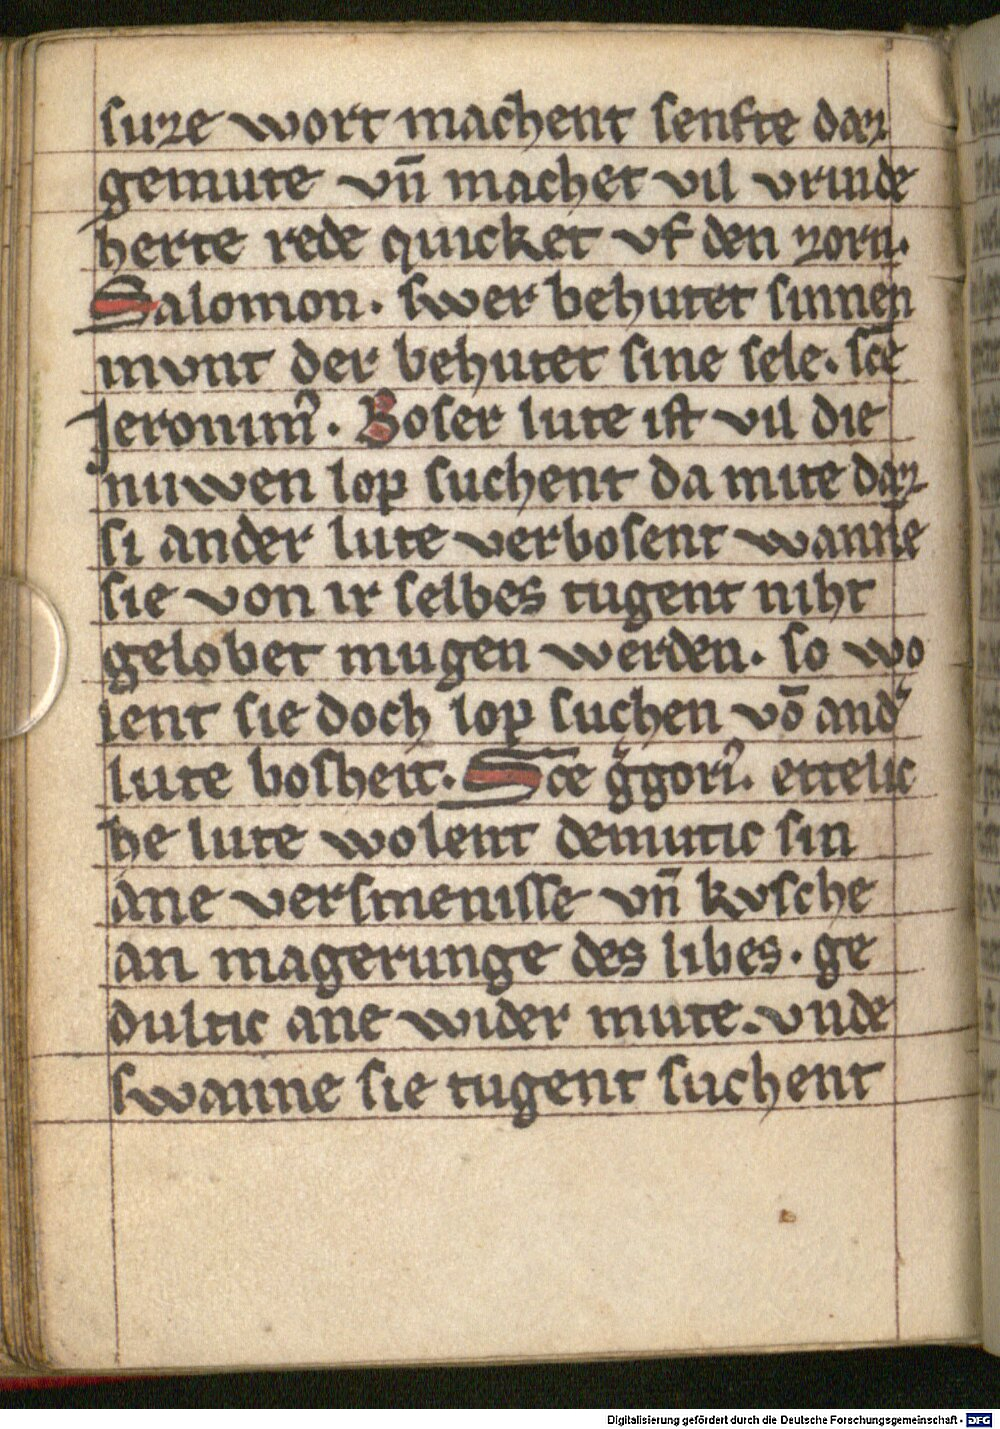 suze wort machent senfte daz
gemute vn̄ machet vil vrinde
herte rede quicket vf den zorn.
Salomon. swer behutet sinnen
mvnt der behutet sine sele. sc̄e
Jeronim᷒. Boser lute ist vil die
niuwen lop suchent da mite daz
si ander lute verbosent wanne
sie von ir selbes tugent niht
gelobet mugen werden. so wo
lent sie doch lop suchen vō and᷒
lute bosheit. Sc̄e g̍gori᷒. ettelic
he lute wolent demutic sin
ane versmenisse vn̄ kvsche
an magerunge des libes. ge
dultic ane wider mute. vnde
swanne sie tugent suchent
Digitalisierung gefördert durch die Deutsche Forschungsgemeinschaft - DFG